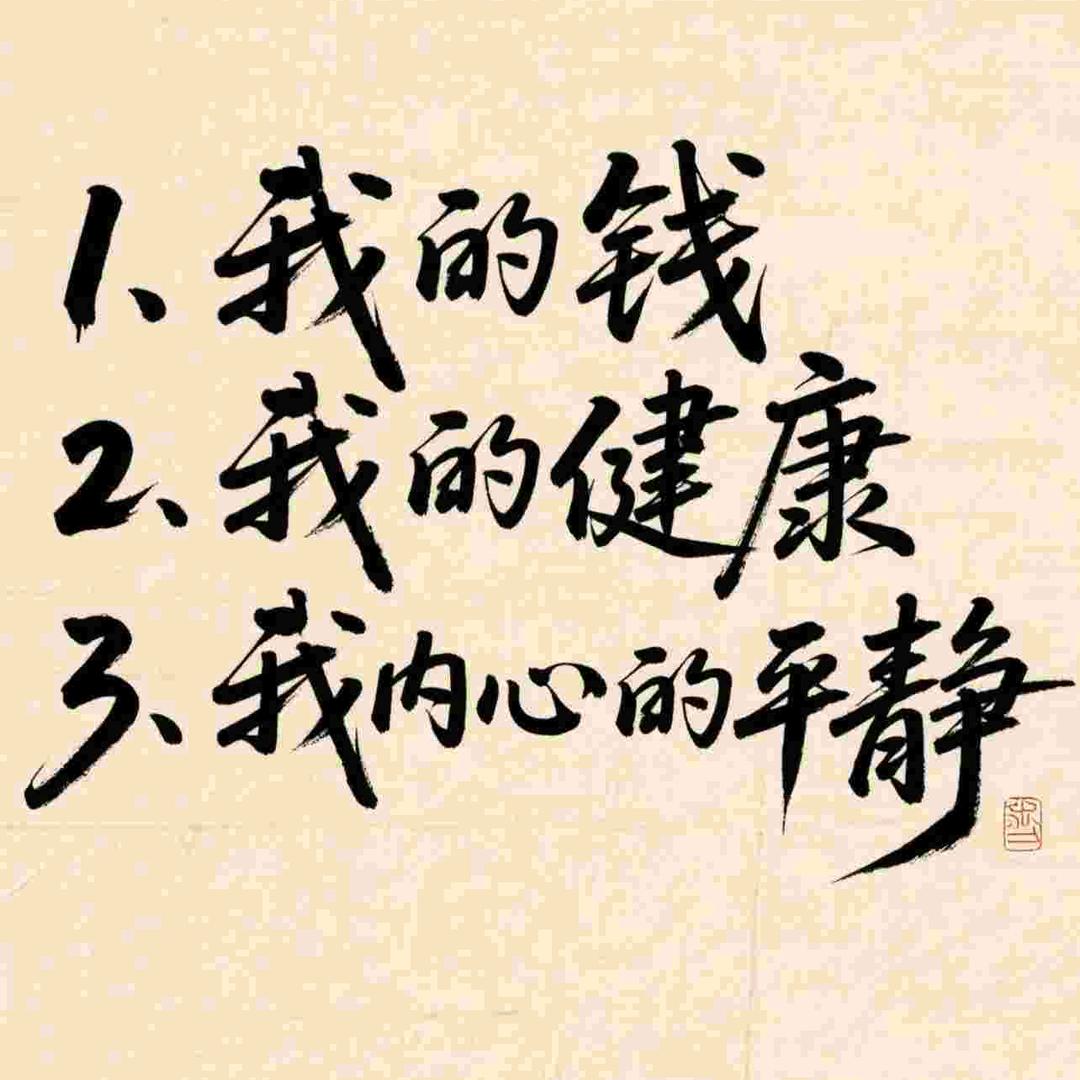 1、我的钱
2、我的健康
3、我内心的平静